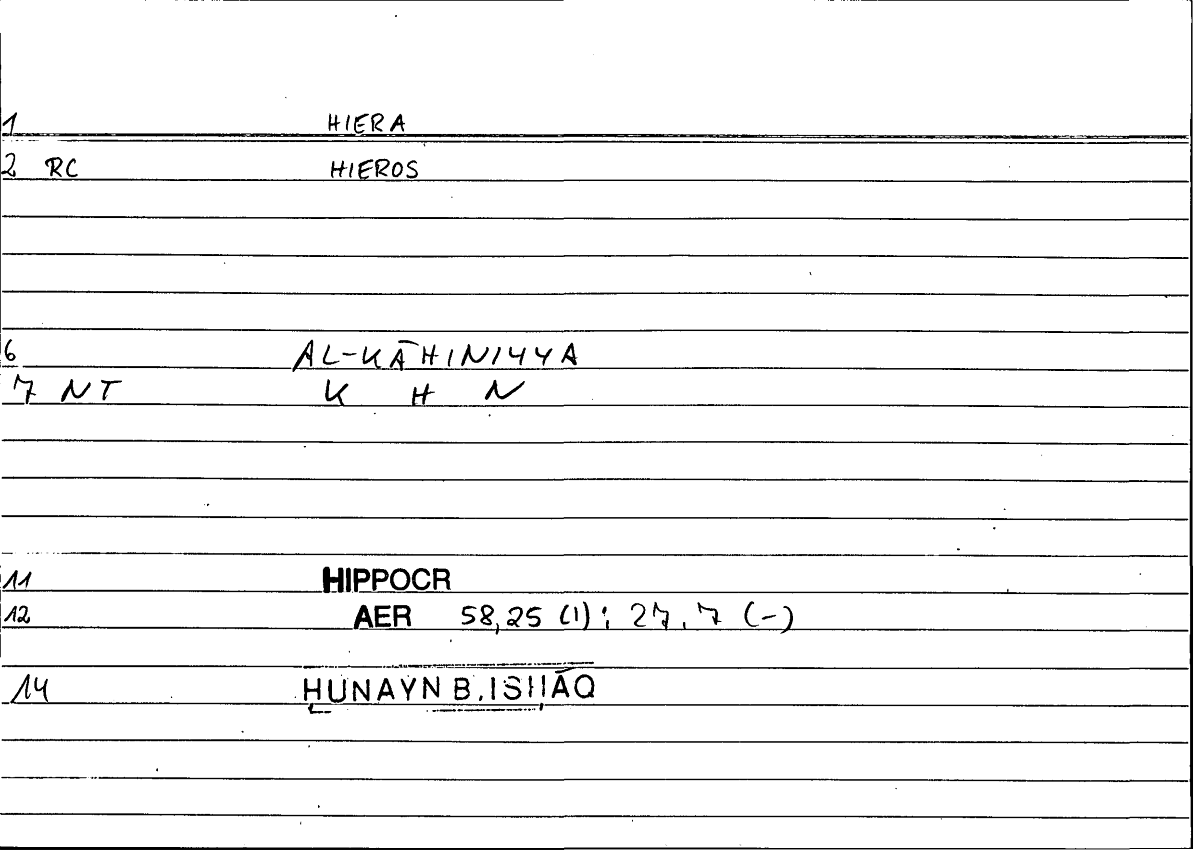 1 HIERA
2 RC HIEROS
6 AL-KĀHINIYYA
7 NT K H N
11 HIPPOCR
12 AER 58,25 (1); 27,7 (-)
14 ḤUNAYN B. ISḤĀQ